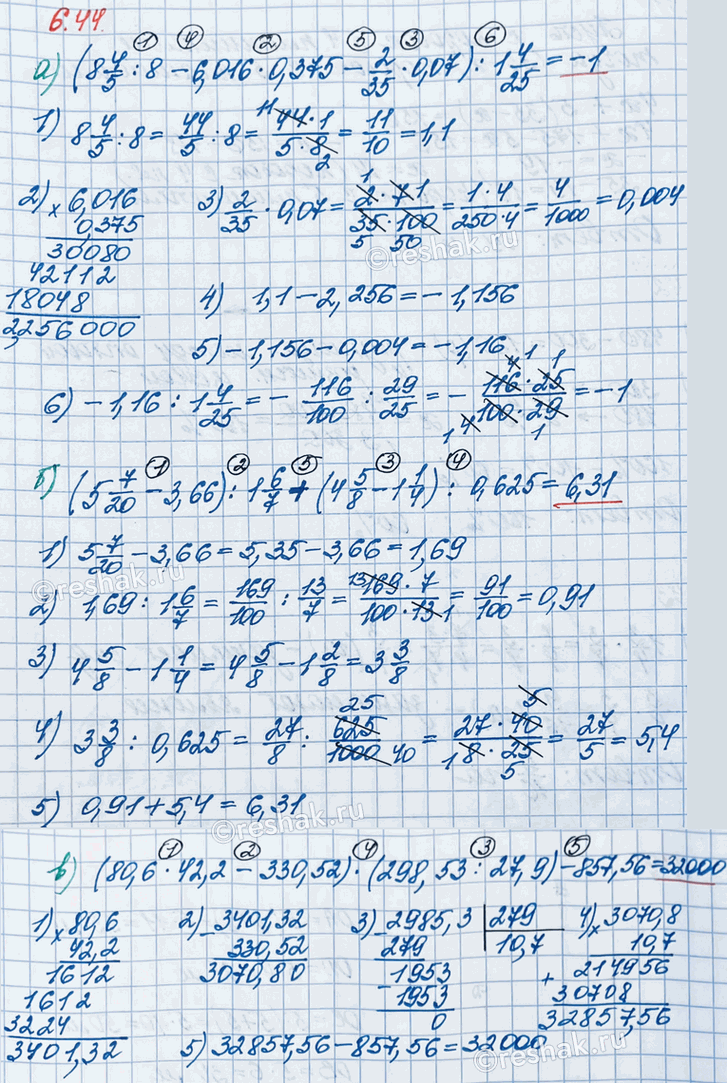 6.44.
① ④ ② ⑤ ③ ⑥
а) (8 4/5 : 8 − 6,016 · 0,375 − 2/35 · 0,07) : 1 4/25 = −1
1) 8 4/5 : 8 = 44/5 : 8 = 44·1/5·8 = 11/10 = 1,1
11
2
2) × 6,016
0,375
30080
42112
18048
2,256000
3) 2/35 · 0,07 = 2·7·1/35·100 = 1·4/250·4 = 4/1000 = 0,004
1
5 50
4) 1,1 − 2,256 = −1,156
5) −1,156 − 0,004 = −1,16
6) −1,16 : 1 4/25 = − 116/100 : 29/25 = − 116·25/100·29 = −1
4 1 1
1 4 1
① ② ⑤ ③ ④
б) (5 7/20 − 3,66) : 1 6/7 + (4 5/8 − 1 1/4) : 0,625 = 6,31
1) 5 7/20 − 3,66 = 5,35 − 3,66 = 1,69
2) 1,69 : 1 6/7 = 169/100 : 13/7 = 169·7/100·13 = 91/100 = 0,91
13
1
3) 4 5/8 − 1 1/4 = 4 5/8 − 1 2/8 = 3 3/8
4) 3 3/8 : 0,625 = 27/8 : 625/1000 = 27·40/8·25 = 27/5 = 5,4
25 5
40 1 5
5) 0,91 + 5,4 = 6,31
① ② ④ ③ ⑤
в) (80,6 · 42,2 − 330,52) · (298,53 : 27,9) − 857,56 = 32000
1) × 80,6
42,2
1612
1612
3224
3401,32
2) − 3401,32
330,52
3070,80
3) − 2985,3 279
279 10,7
− 1953
1953
0
4) × 3070,8
10,7
+ 214956
30708
32857,56
5) 32857,56 − 857,56 = 32000
reshak.ru
reshak.ru
reshak.ru
reshak.ru